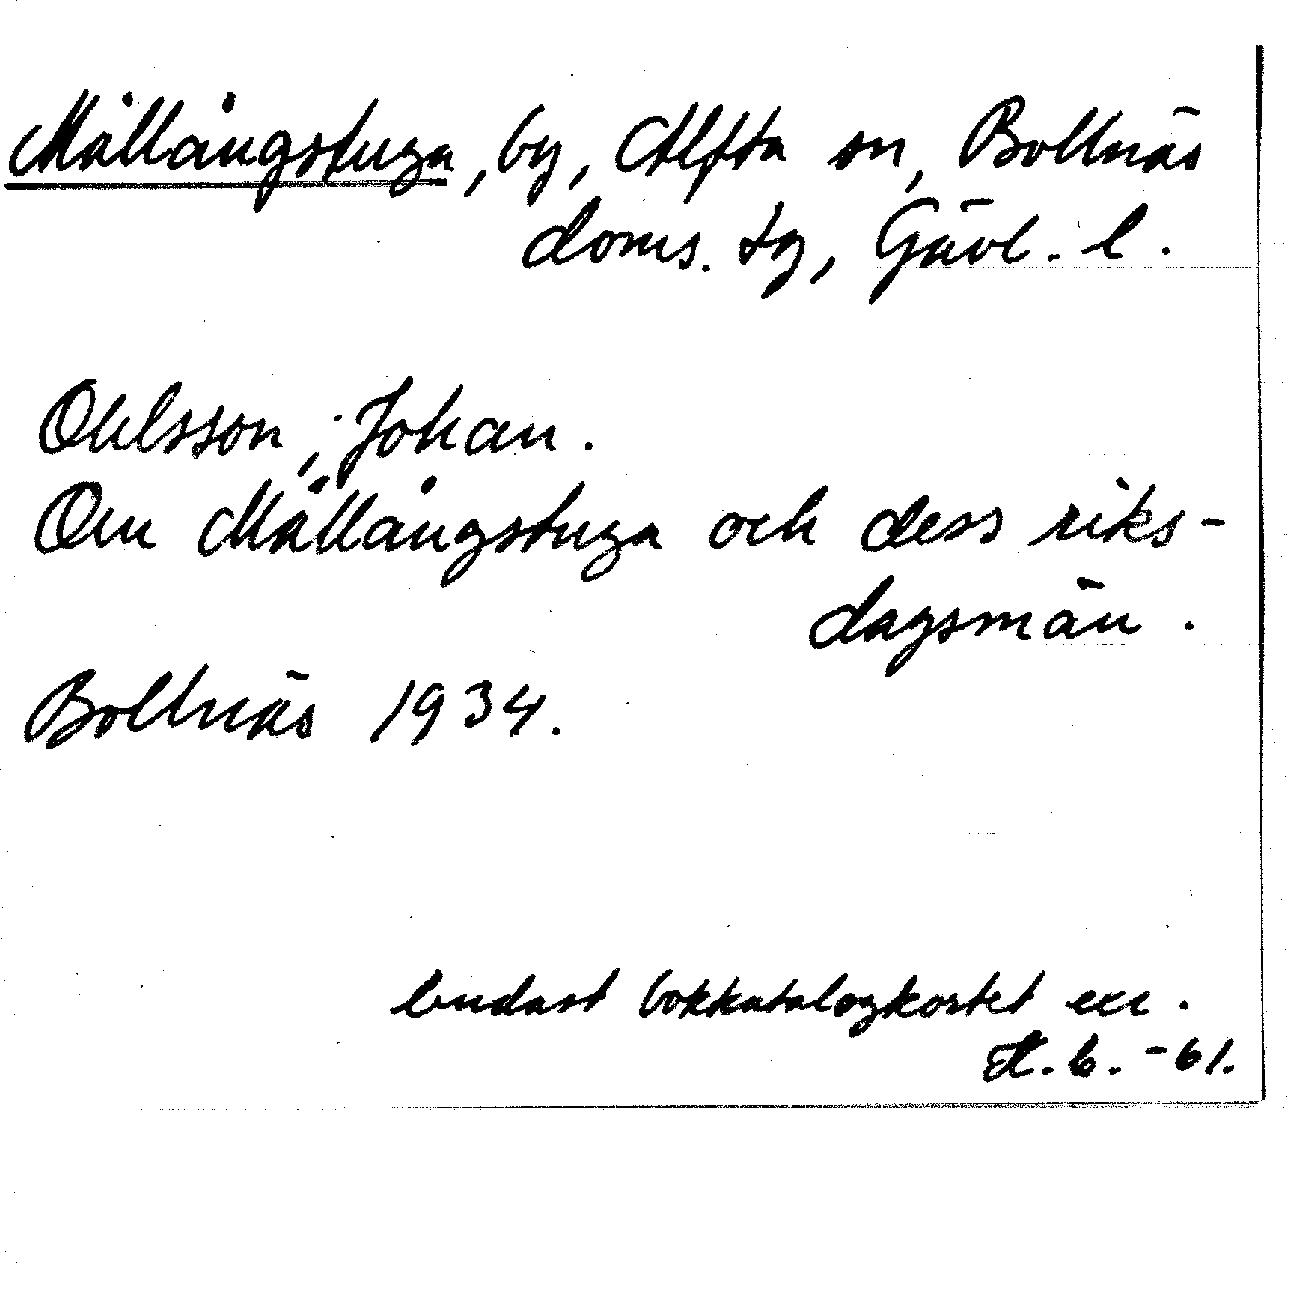 Mållångstuga, by, Alfta sn, Bollnäs
doms. tg, Gävl. l.
Ohlsson, Johan.
Om Mållångstuga och dess riks-
dagsmän.
Bollnäs 1934.
endast bokkatalogkortet exc.
6. -61.